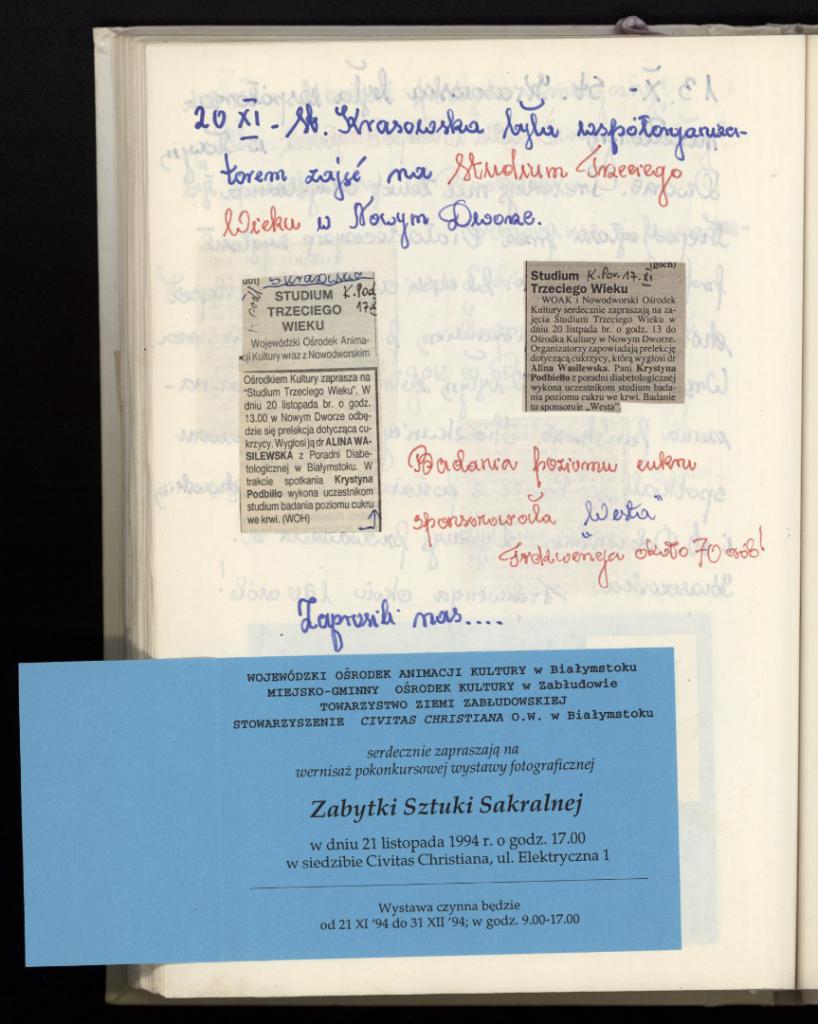 20 XI - St. Krasowska była współorganiza-
torem zajęć na Studium Trzeciego
Wieku w Nowym Dworze.
K. Pod.
17 XI
STUDIUM
TRZECIEGO
WIEKU
Wojewódzki Ośrodek Anima-
cji Kultury wraz z Nowodworskim
Ośrodkiem Kultury zaprasza na
"Studium Trzeciego Wieku". W
dniu 20 listopada br. o godz.
13.00 w Nowym Dworze odbę-
dzie się prelekcja dotycząca cu-
krzycy. Wygłosi ją dr ALINA WA-
SILEWSKA z Poradni Diabe-
tologicznej w Białymstoku. W
trakcie spotkania Krystyna
Podbiłło wykona uczestnikom
studium badania poziomu cukru
we krwi. (WOH)
(goch)
Studium K. Por. 17. XI
Trzeciego Wieku
WOAK i Nowodworski Ośrodek
Kultury serdecznie zapraszają na za-
jęcia Studium Trzeciego Wieku w
dniu 20 listopada br. o godz. 13 do
Ośrodka Kultury w Nowym Dworze.
Organizatorzy zapowiadają prelekcję
dotyczącą cukrzycy, którą wygłosi dr
Alina Wasilewska. Pani Krystyna
Podbiełło z poradni diabetologicznej
wykona uczestnikom studium bada-
nia poziomu cukru we krwi. Badanie
to sponsoruje „Westa"
Badania poziomu cukru
sponsorowała „Westa"
Frekwencja około 70 osób!
Zaprosili nas....
WOJEWÓDZKI OŚRODEK ANIMACJI KULTURY w Białymstoku
MIEJSKO-GMINNY OŚRODEK KULTURY w Zabłudowie
TOWARZYSTWO ZIEMI ZABŁUDOWSKIEJ
STOWARZYSZENIE CIVITAS CHRISTIANA O.W. w Białymstoku
serdecznie zapraszają na
wernisaż pokonkursowej wystawy fotograficznej
Zabytki Sztuki Sakralnej
w dniu 21 listopada 1994 r. o godz. 17.00
w siedzibie Civitas Christiana, ul. Elektryczna 1
Wystawa czynna będzie
od 21 XI '94 do 31 XII '94; w godz. 9.00-17.00